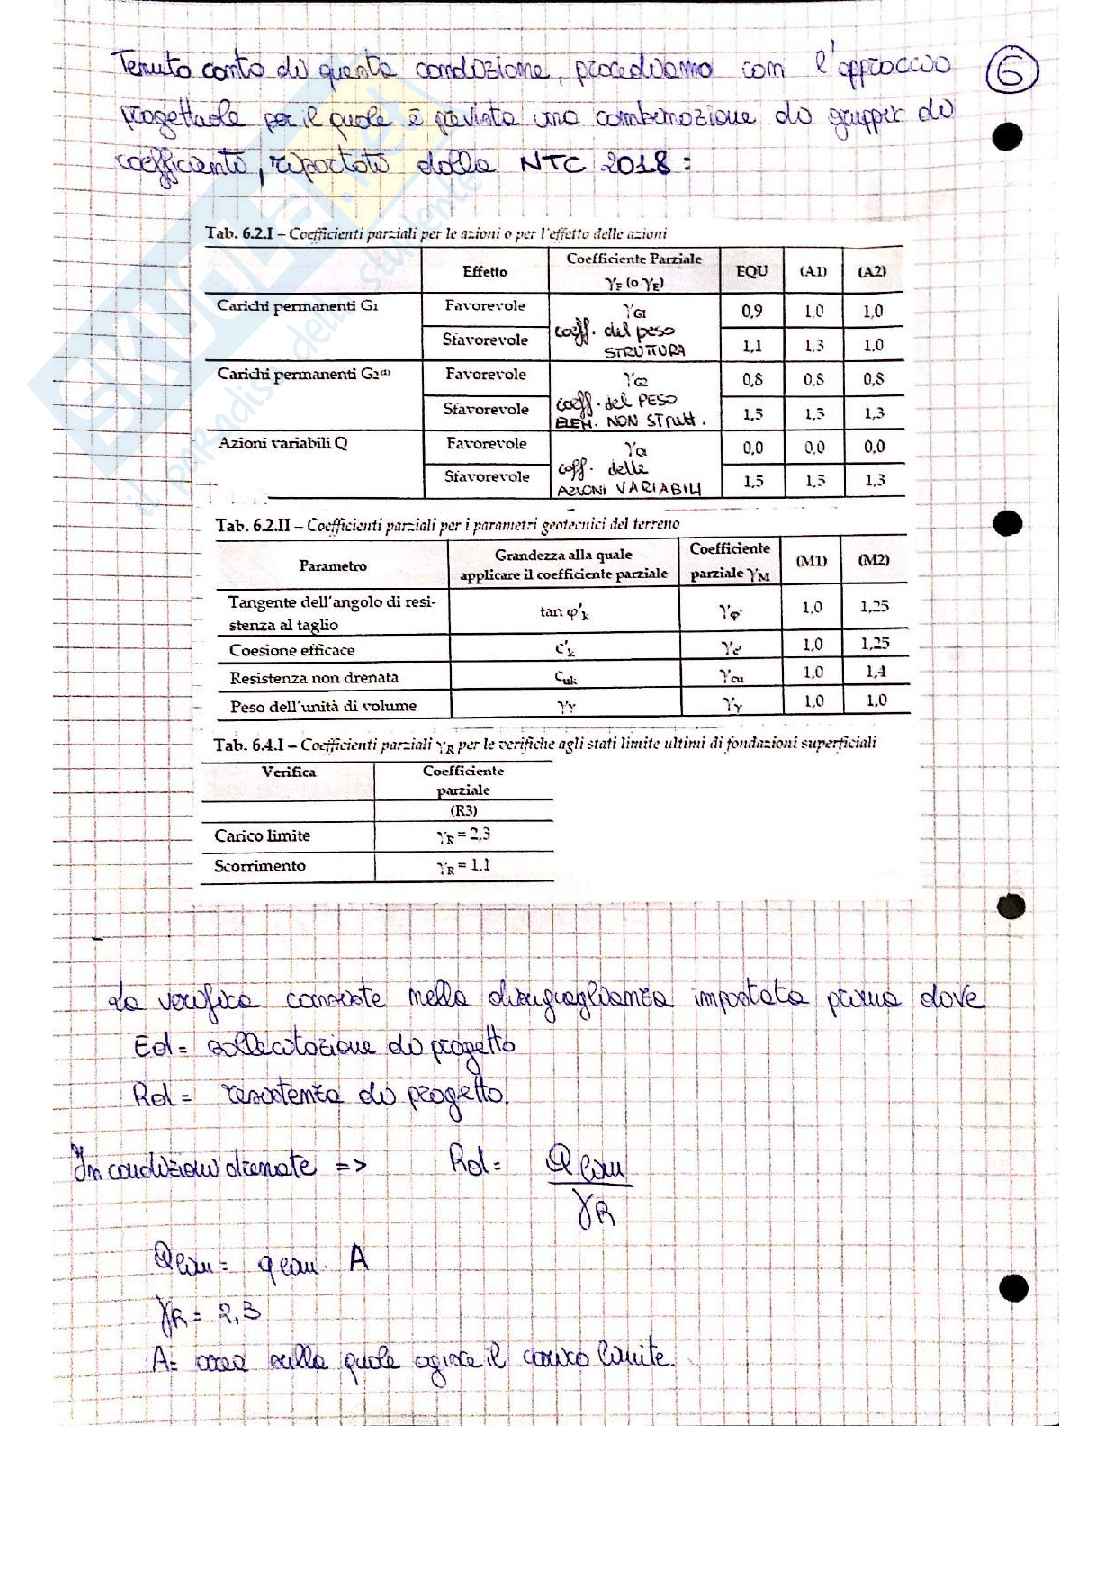 Tenuto conto di questa condizione, procediamo con l'approccio
6
progettuale per il quale è prevista una combinazione di gruppi di
coefficienti, riportati dalla NTC 2018:
Tab. 6.2.I – Coefficienti parziali per le azioni o per l'effetto delle azioni
Effetto Coefficiente Parziale γF (o γE) EQU (A1) (A2)
Carichi permanenti G1 Favorevole γG1 0,9 1,0 1,0
coeff. del peso STRUTTURA
Sfavorevole 1,1 1,3 1,0
Carichi permanenti G2(1) Favorevole γG2 0,8 0,8 0,8
coeff. del PESO ELEM. NON STRUTT.
Sfavorevole 1,5 1,5 1,3
Azioni variabili Q Favorevole γQ 0,0 0,0 0,0
coff. delle AZIONI VARIABILI
Sfavorevole 1,5 1,5 1,3
Tab. 6.2.II – Coefficienti parziali per i parametri geotecnici del terreno
Parametro Grandezza alla quale applicare il coefficiente parziale Coefficiente parziale γM (M1) (M2)
Tangente dell'angolo di resi-
stenza al taglio tan φ'k γφ' 1,0 1,25
Coesione efficace c'k γc' 1,0 1,25
Resistenza non drenata cuk γcu 1,0 1,4
Peso dell'unità di volume γγ γγ 1,0 1,0
Tab. 6.4.I – Coefficienti parziali γR per le verifiche agli stati limite ultimi di fondazioni superficiali
Verifica Coefficiente
parziale
(R3)
Carico limite γR = 2,3
Scorrimento γR = 1,1
La verifica consiste nella disuguaglianza impostata prima dove
Ed = sollecitazione di progetto
Rd = resistenza di progetto.
In condizioni drenate => Rd = Qlim / γR
Qlim = qlim · A
γR = 2,3
A = area sulla quale agisce il carico limite.
SKUOLA.net
il paradiso dello studente